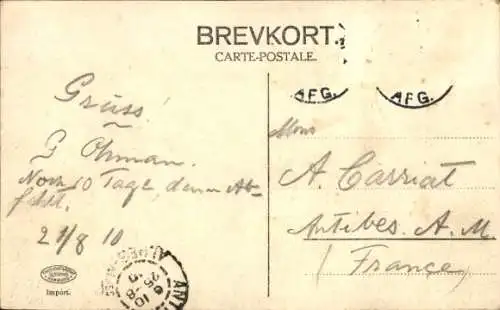 BREVKORT.
CARTE-POSTALE.
AFG.
AFG.
Gruss!
G Ohman.
Noch 10 Tage, dann Ab-
fahrt.
21/8 10
Mons
A. Carriat
Antibes. A. M.
(France)
ANT
25
10
Import.